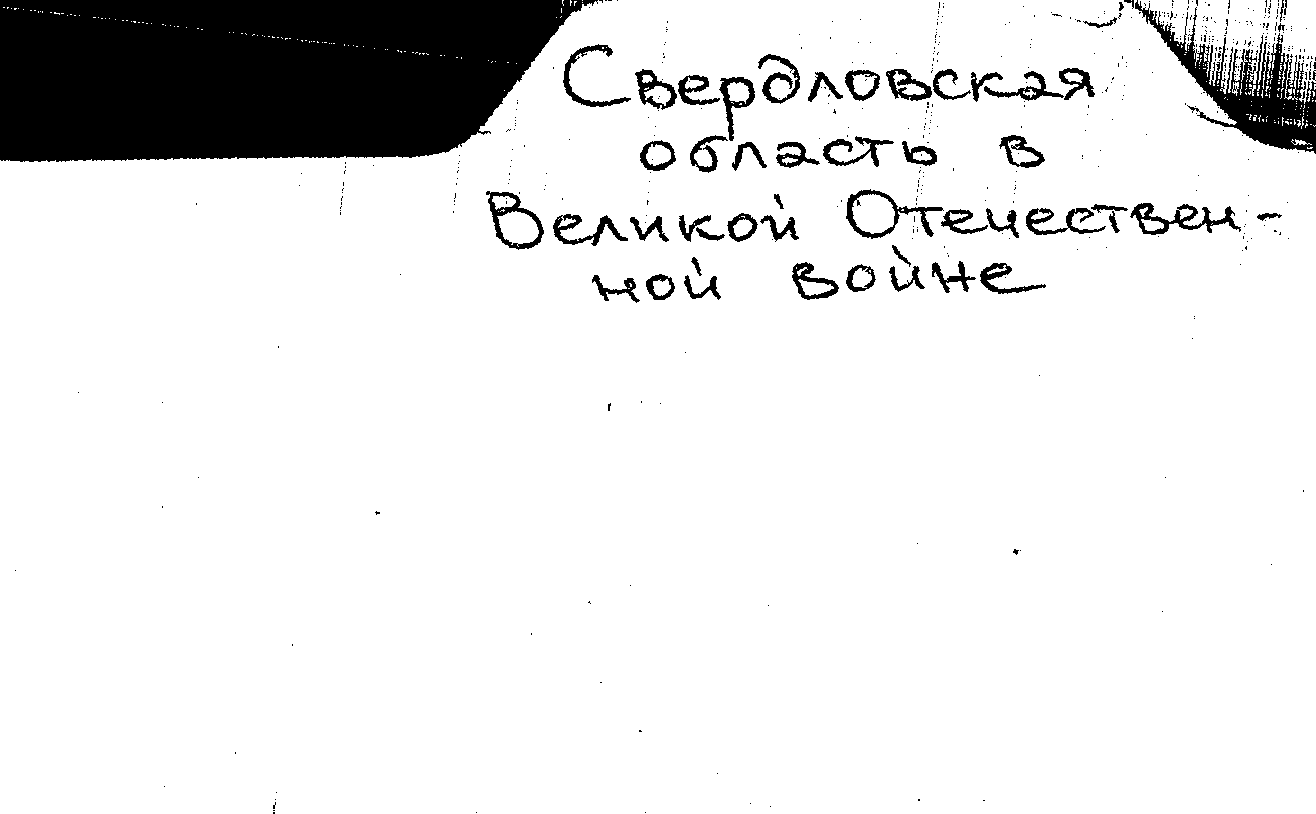 Свердловская
область в
Великой Отечествен-
ной войне